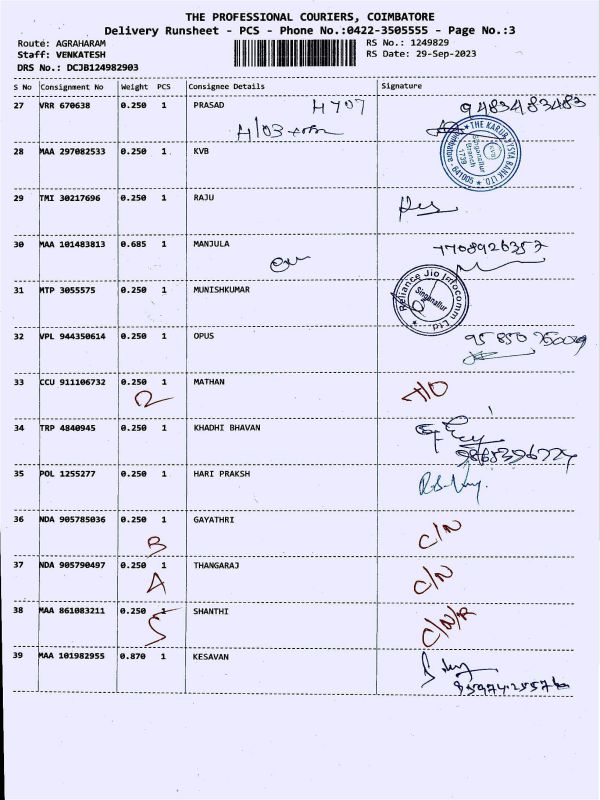 THE PROFESSIONAL COURIERS, COIMBATORE
Delivery Runsheet - PCS - Phone No.:0422-3505555 - Page No.:3
Route: AGRAHARAM RS No.: 1249829
Staff: VENKATESH RS Date: 29-Sep-2023
DRS No.: DCJB124982903
S No Consignment No Weight PCS Consignee Details Signature
27 VRR 670638 0.250 1 PRASAD H707 9483483483
H/03
28 MAA 297082533 0.250 1 KVB
THE KARUR VYSYA BANK LTD.
Singanallur
Branch
1739
641005
29 TMI 30217696 0.250 1 RAJU
30 MAA 101483813 0.685 1 MANJULA 7708926357
31 MTP 3055575 0.250 1 MUNISHKUMAR
Reliance Jio Infocomm Ltd.
Singanallur
32 VPL 944350614 0.250 1 OPUS
33 CCU 911106732 0.250 1 MATHAN
34 TRP 4840945 0.250 1 KHADHI BHAVAN
35 POL 1255277 0.250 1 HARI PRAKSH
36 NDA 905785036 0.250 1 GAYATHRI C/N
B
37 NDA 905790497 0.250 1 THANGARAJ C/N
A
38 MAA 861083211 0.250 1 SHANTHI C/N/R
S
39 MAA 101982955 0.870 1 KESAVAN